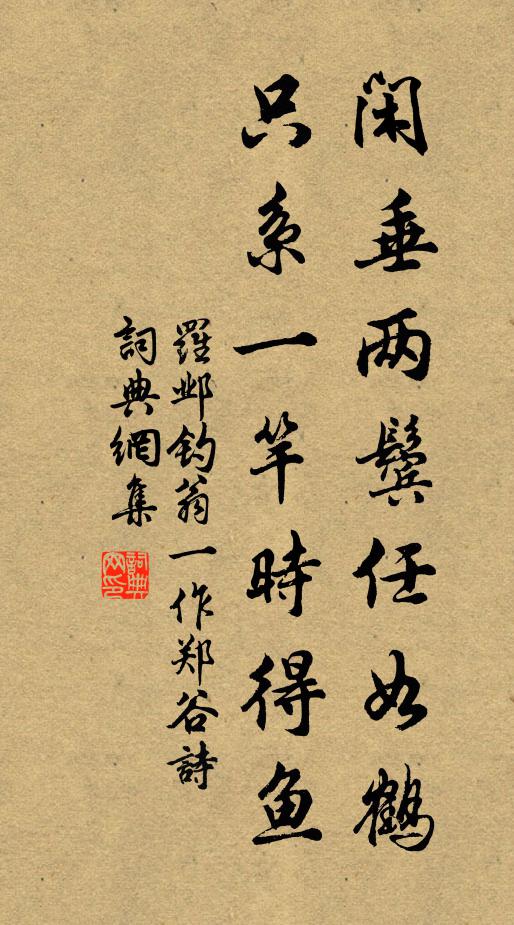 闲垂两鬓任如鹤
只系一竿時得鱼
羅邺钓翁一作郑谷詩
詞典網集
詞典网印